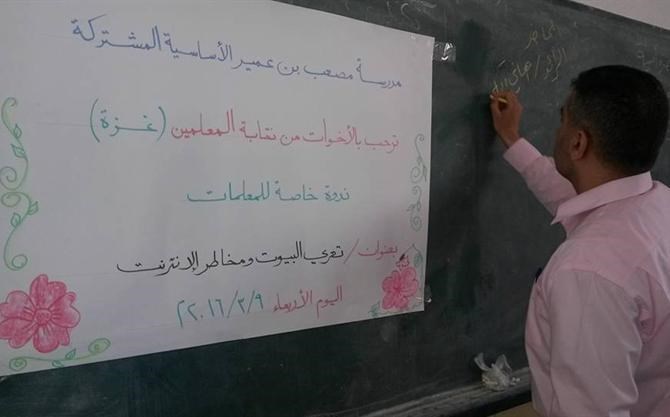 مدرسة مصعب بن عمير الأساسية المشتركة
ترحب بالأخوات من نقابة المعلمين (غزة)
ندوة خاصة للمعلمات
بعنوان / تعري البيوت ومخاطر الإنترنت
اليوم الأربعاء ٢٠١٦/٣/٩م
الرائد / هاني